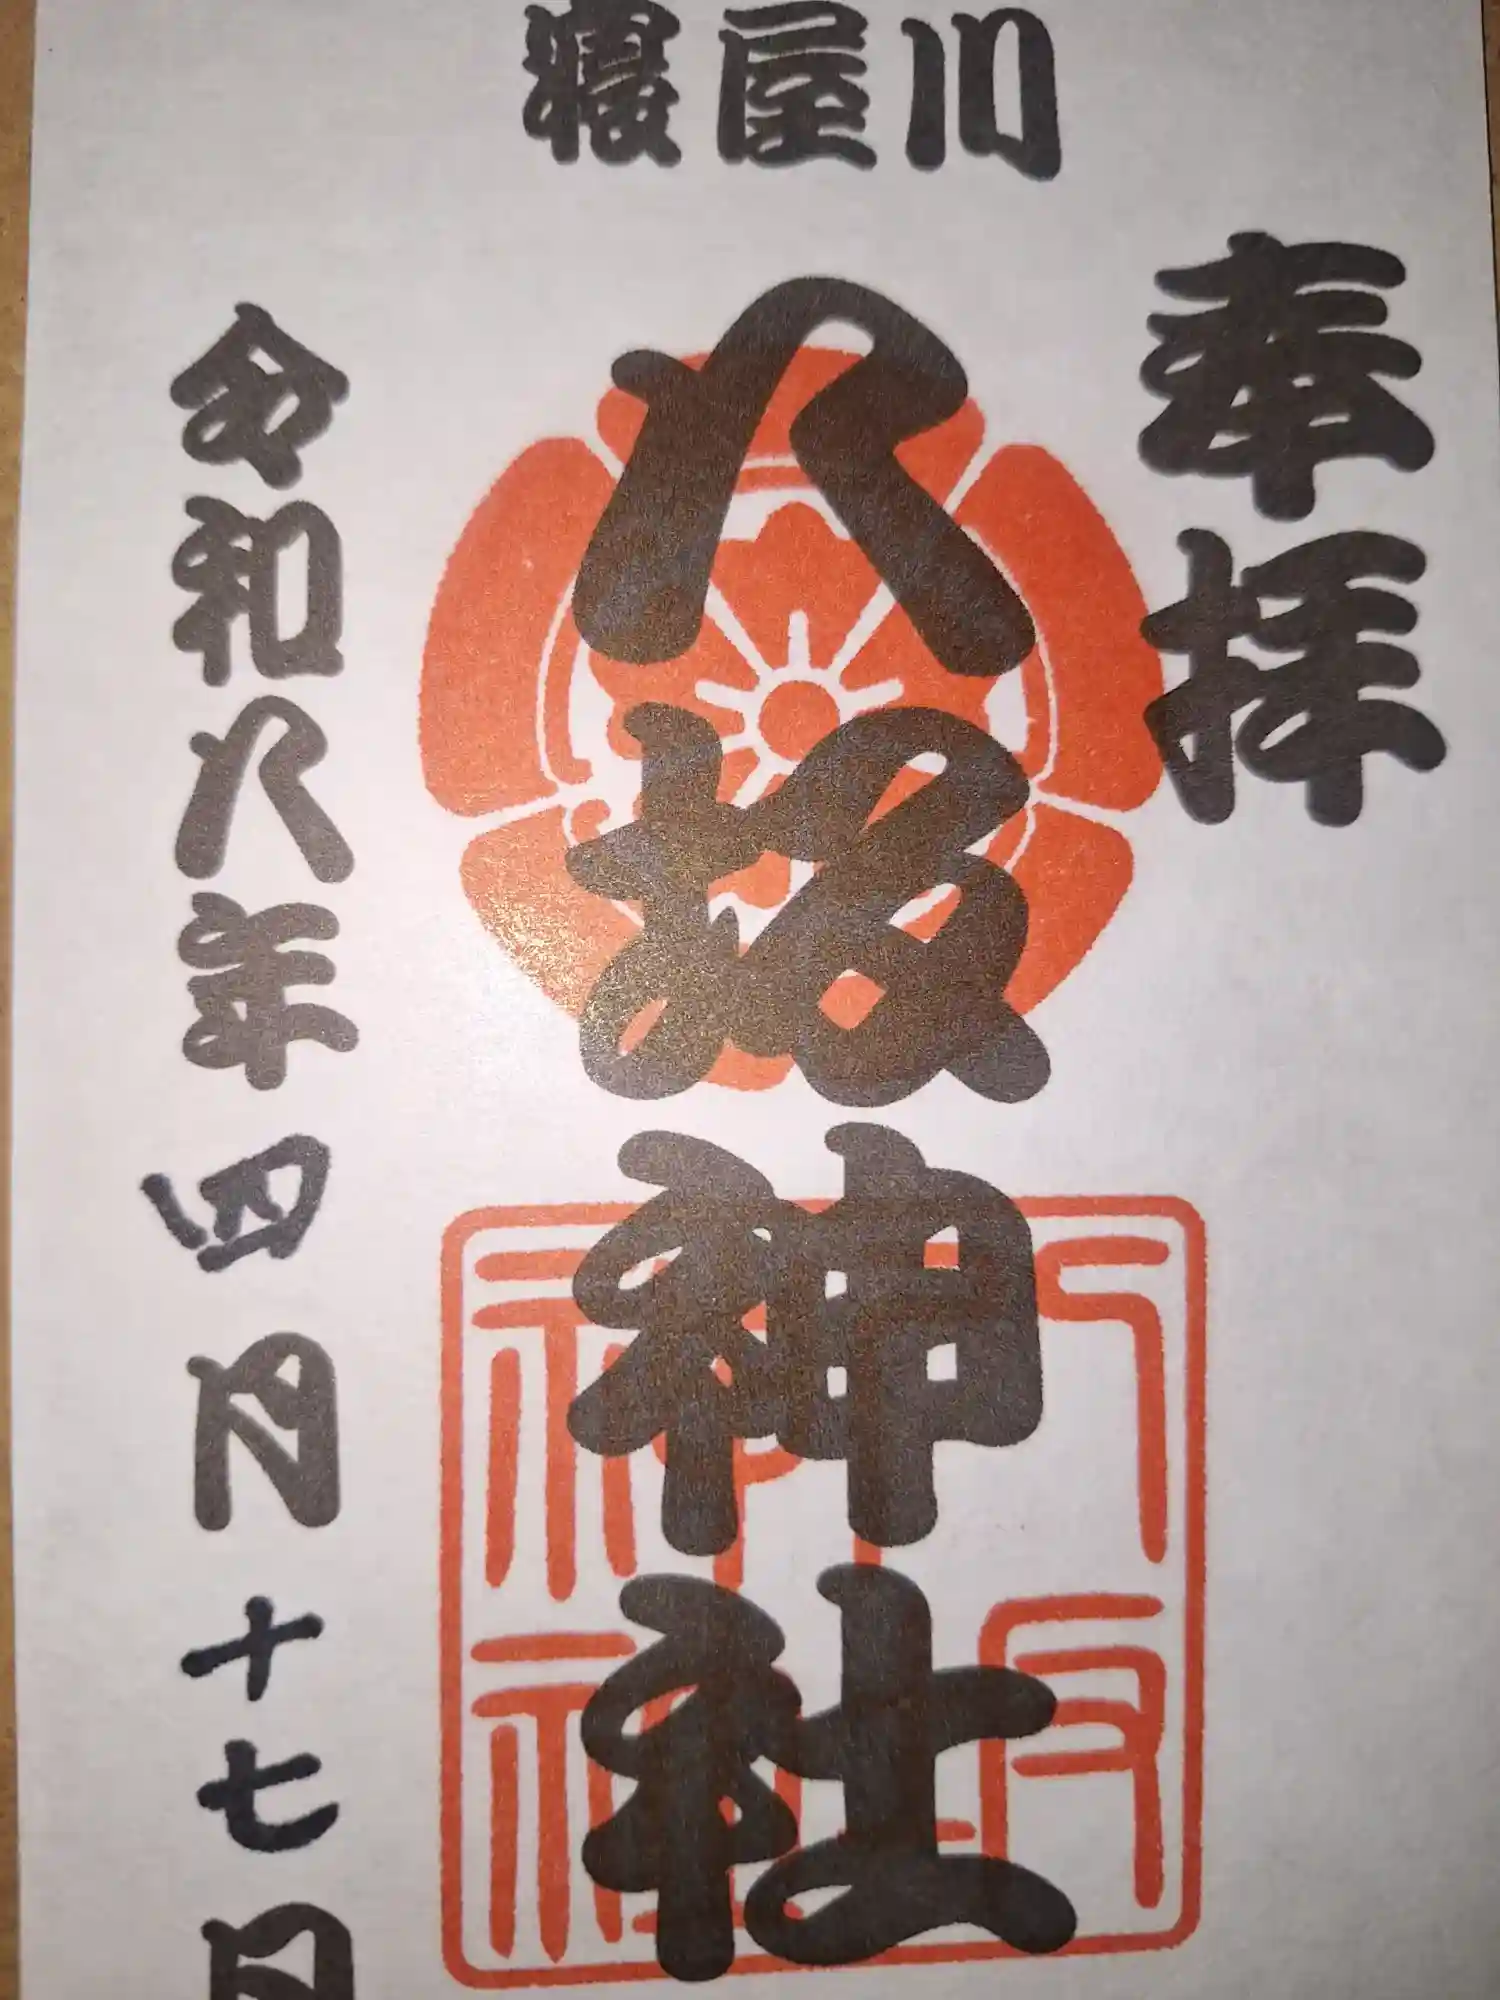 寝屋川
奉拝
八坂神社
令和八年四月十七日